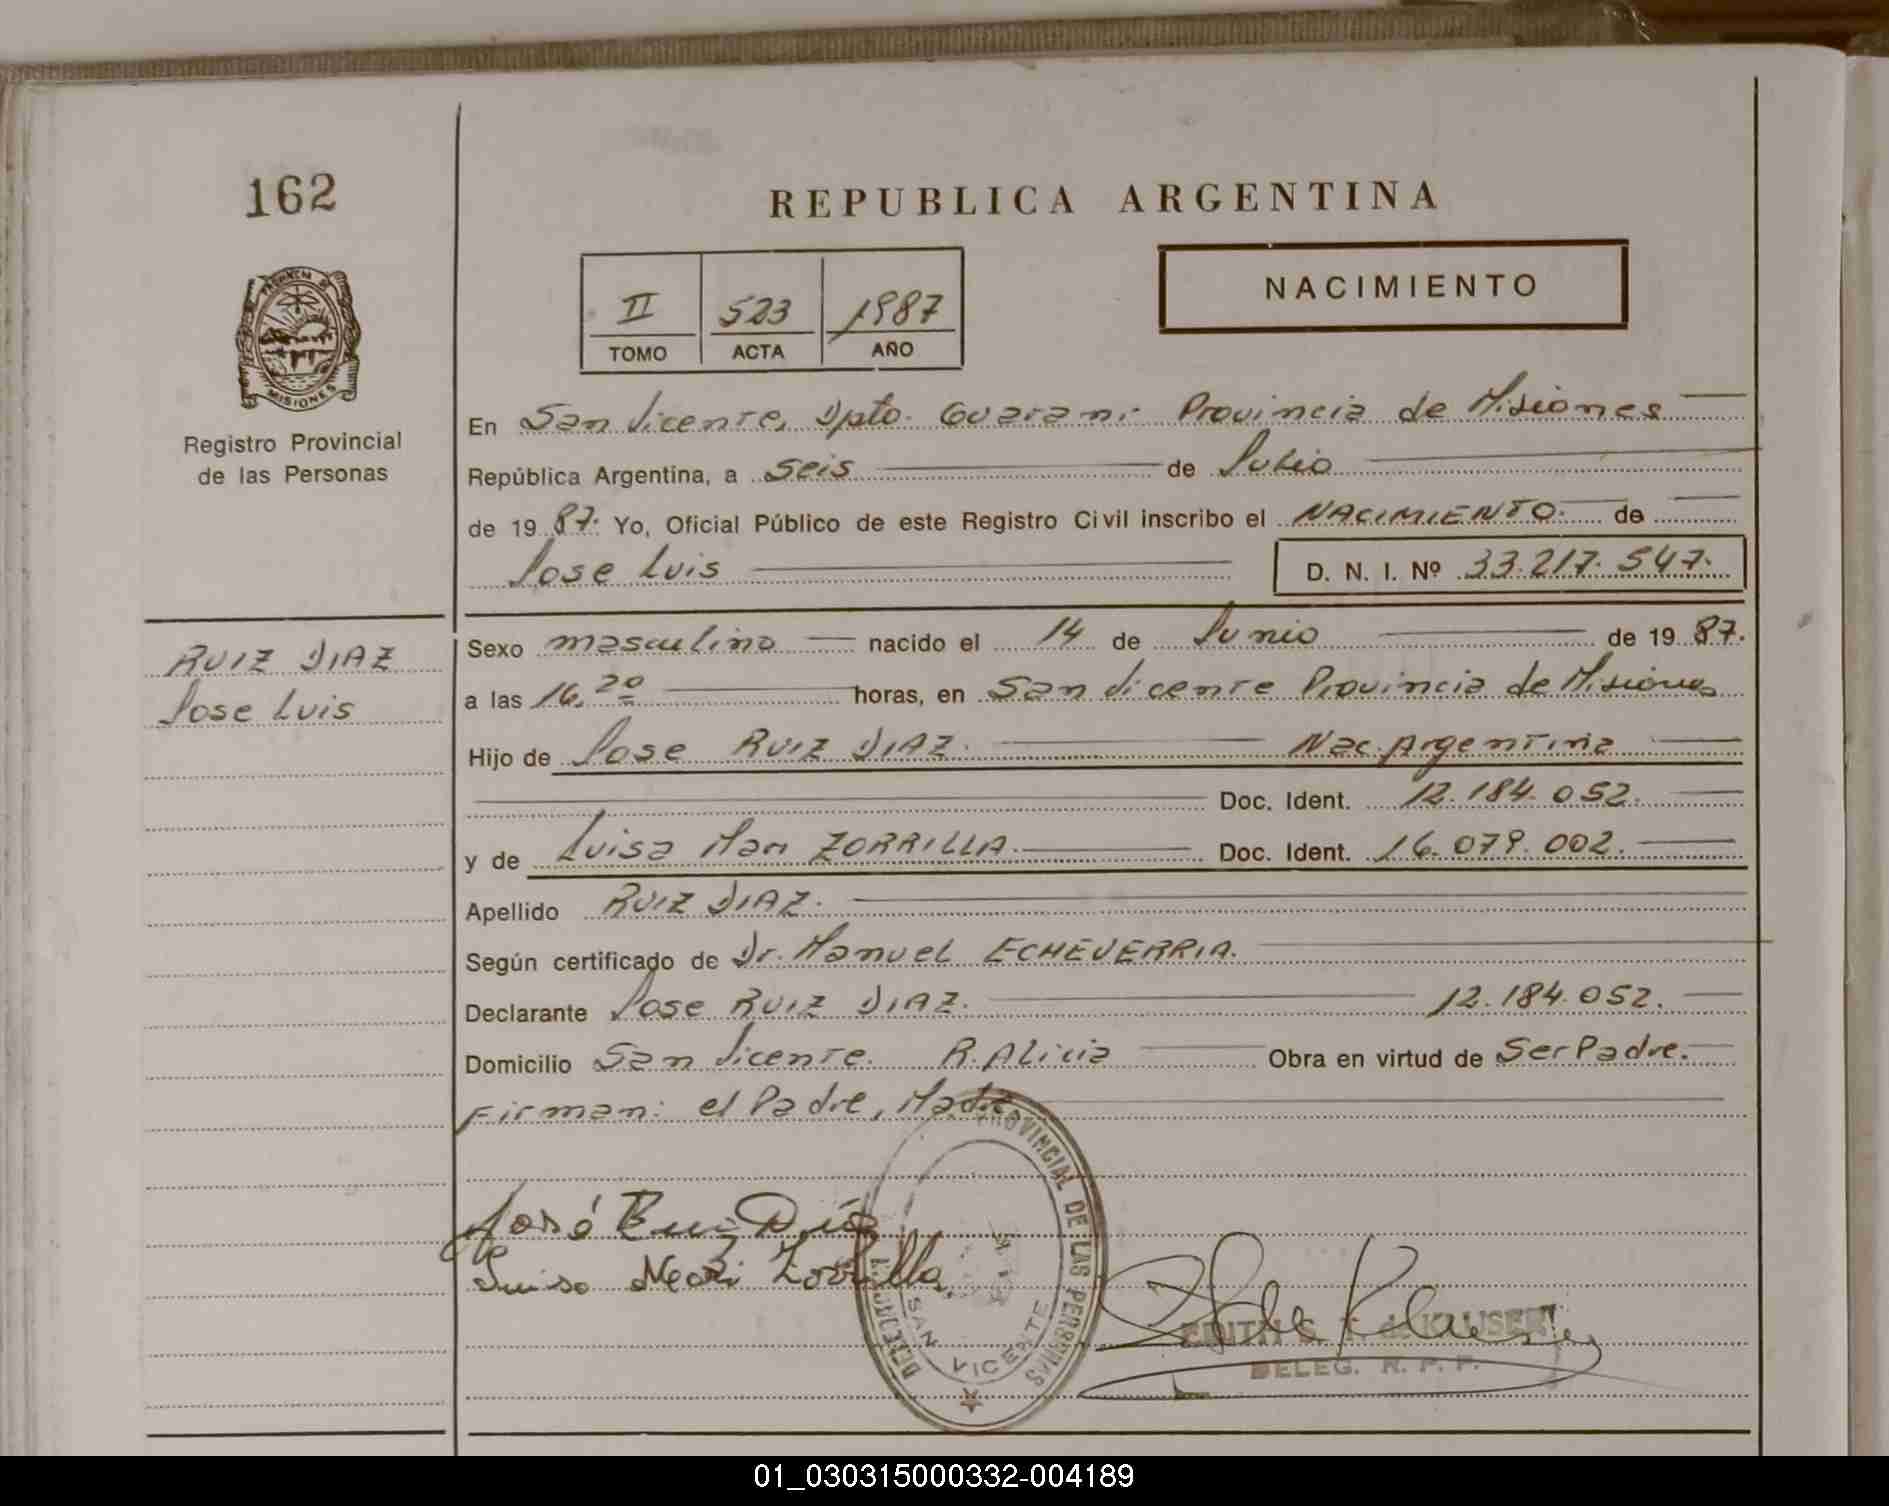 162
REPUBLICA ARGENTINA
PROVINCIA DE
MISIONES
Registro Provincial
de las Personas
II 523 1987
TOMO ACTA AÑO
NACIMIENTO
En San Vicente, Dpto. Guarani Provincia de Misiones
República Argentina, a seis de Julio
de 1987. Yo, Oficial Público de este Registro Civil inscribo el NACIMIENTO de
Jose Luis D. N. I. Nº 33.217.547.
RUIZ DIAZ
Jose Luis
Sexo masculino nacido el 14 de Junio de 1987.
a las 16,20 horas, en San Vicente Provincia de Misiones
Hijo de Jose RUIZ DIAZ. Nac. Argentina
Doc. Ident. 12.184.052.
y de Luisa Mari ZORRILLA Doc. Ident. 16.079.002.
Apellido RUIZ DIAZ.
Según certificado de Dr. Manuel ECHEVERRIA.
Declarante Jose RUIZ DIAZ. 12.184.052.
Domicilio San Vicente. R. Alicia Obra en virtud de Ser Padre.
Firman: el Padre, Madre
PROVINCIAL DE LAS PERSONAS
SAN VICENTE
José Rui Díaz
Luisa Mari Zorrilla.
EDITH S. T. de KLAUSER
DELEG. R. P. P.
01_030315000332-004189